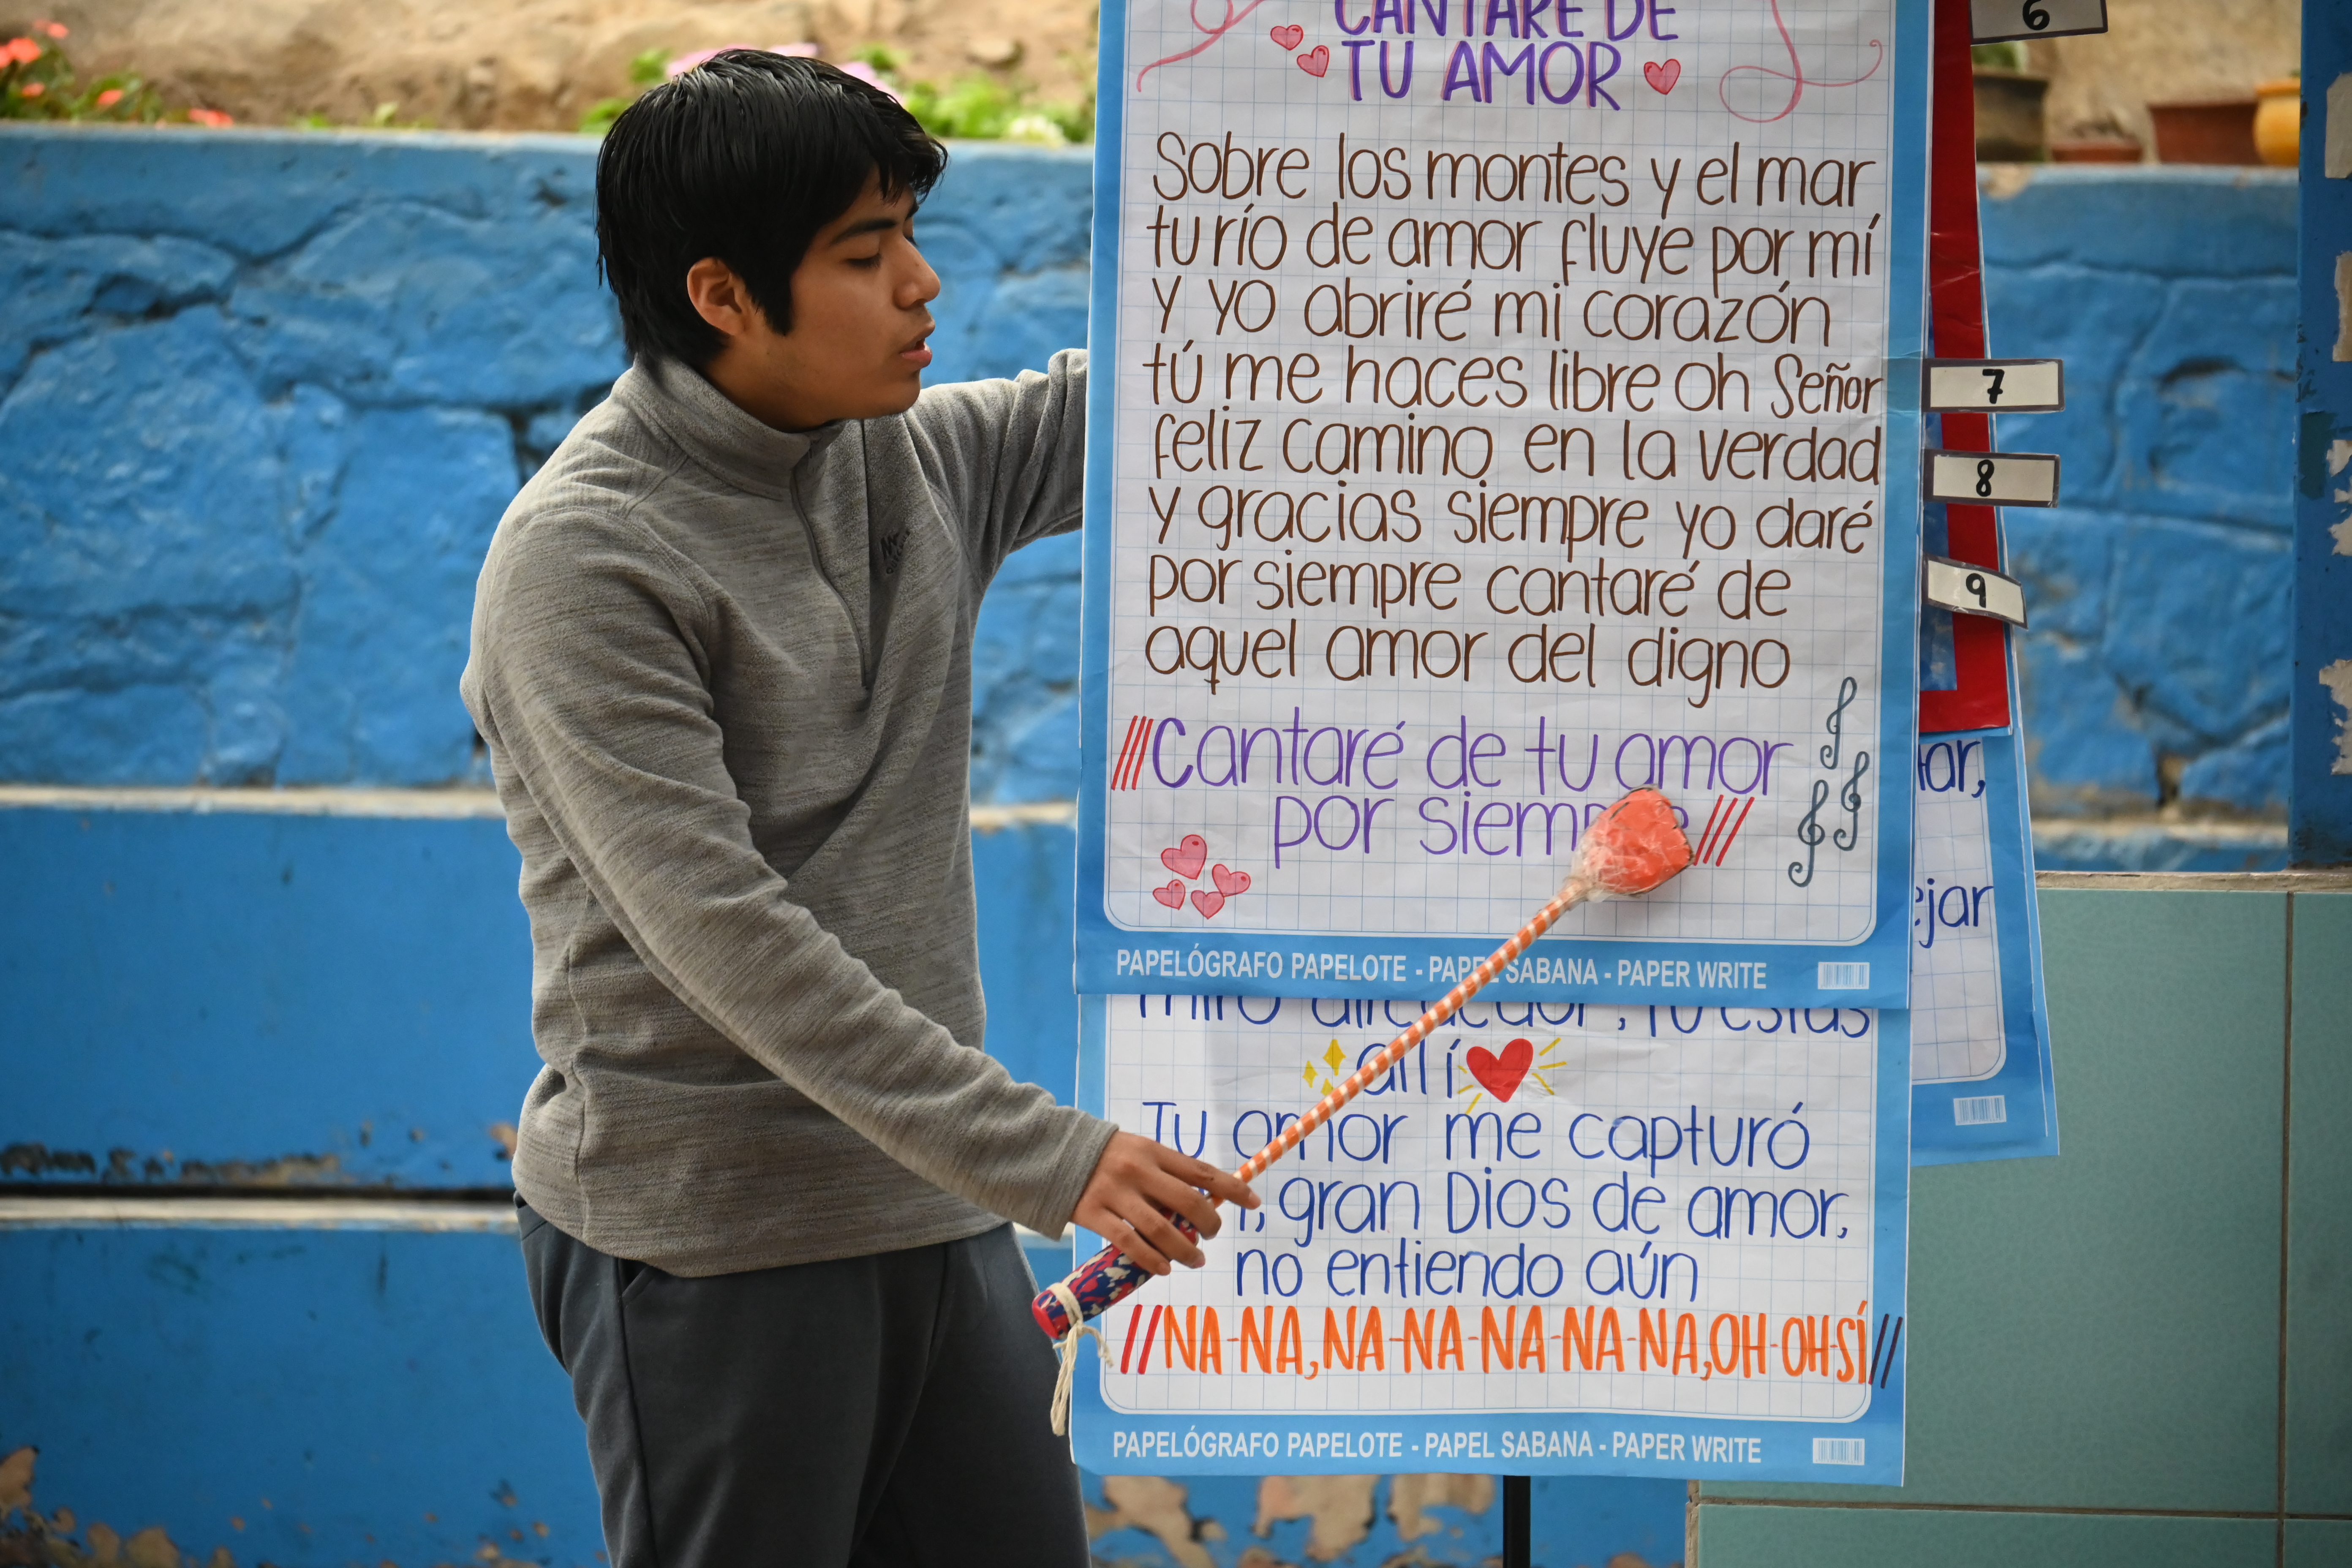 CANTARÉ DE
TU AMOR
Sobre los montes y el mar
tu río de amor fluye por mí
y yo abriré mi corazón
tú me haces libre oh Señor
feliz camino en la verdad
y gracias siempre yo daré
por siempre cantaré de
aquel amor del digno
///Cantaré de tu amor
por siempre///
PAPELÓGRAFO PAPELOTE - PAPEL SABANA - PAPER WRITE
miro alrededor, Tú estás
allí
Tu amor me capturó
, gran Dios de amor,
no entiendo aún
//NA-NA, NA-NA-NA-NA-NA, OH-OH-SÍ//
PAPELÓGRAFO PAPELOTE - PAPEL SABANA - PAPER WRITE
6
7
8
9
ejar